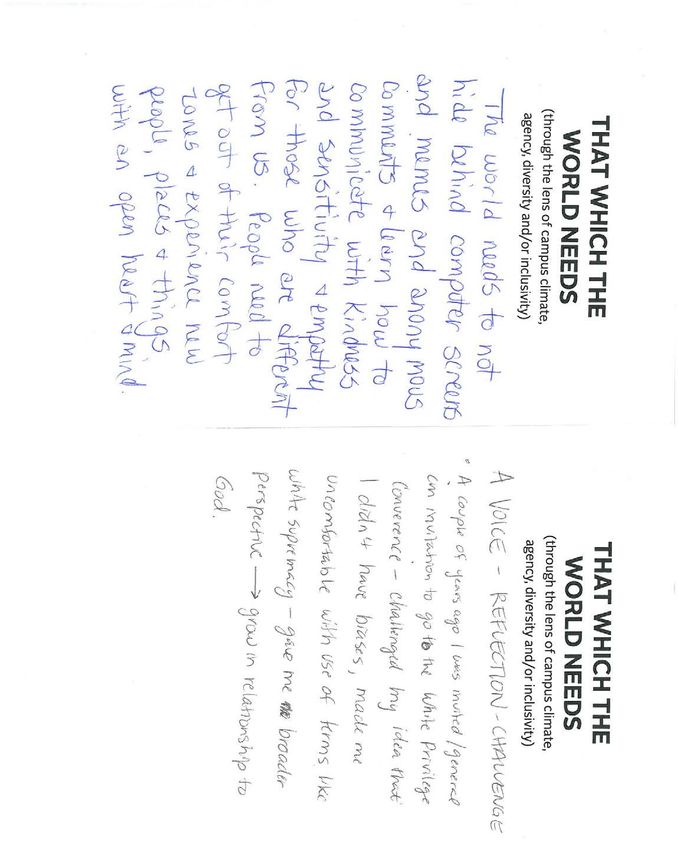 THAT WHICH THE
WORLD NEEDS
(through the lens of campus climate,
agency, diversity and/or inclusivity)
The world needs to not
hide behind computer screens
and memes and anonymous
comments & learn how to
communicate with kindness
and sensitivity & empathy
for those who are different
from us. People need to
get out of their comfort
zones & experience new
people, places & things
with an open heart & mind.
THAT WHICH THE
WORLD NEEDS
(through the lens of campus climate,
agency, diversity and/or inclusivity)
A VOICE - REFLECTION - CHALLENGE
• A couple of years ago I was invited/general
an invitation to go to the White Privilege
Converence - challenged my idea that
I didn't have biases, made me
uncomfortable with use of terms like
white supremacy - gave me broader
perspective → grow in relationship to
God.